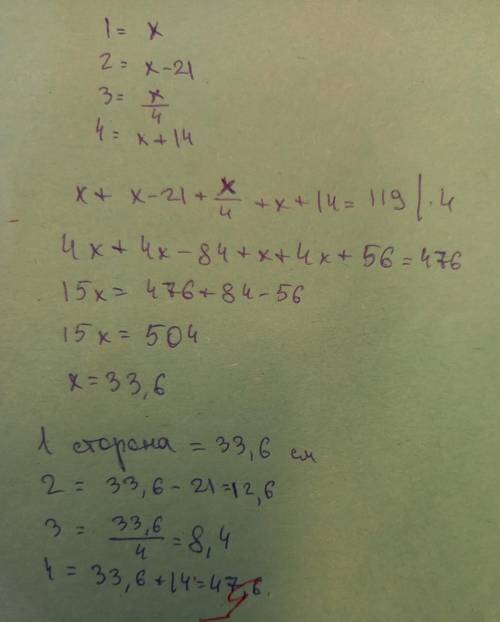 1 = x
2 = x-21
3 = x/4
4 = x+14
x + x-21 + x/4 + x+14 = 119 |·4
4x+4x-84+x+4x+56=476
15x = 476+84-56
15x = 504
x=33,6
1 сторона = 33,6 см
2 = 33,6-21=12,6
3 = 33,6/4 = 8,4
4 = 33,6+14=47,6.